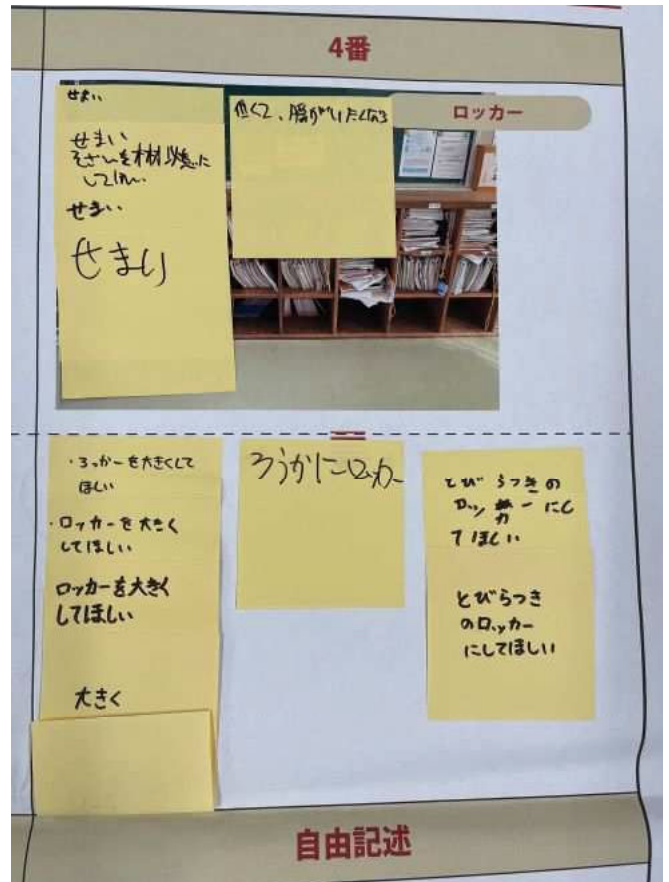 4番
ロッカー
せまい
せまい
そざいを木材以外に
してほしい
せまい
せまい
低くて、腰がいたくなる
・ろっかーを大きくして
ほしい
・ロッカーを大きく
してほしい
ロッカーを大きく
してほしい
大きく
ろうかにロッカー
とびらつきの
ロッカーにし
てほしい
とびらつき
のロッカー
にしてほしい
自由記述